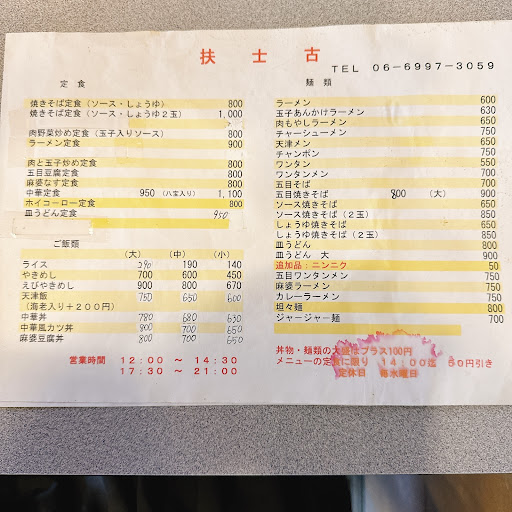 扶士古
TEL 06-6997-3059
定食
焼きそば定食（ソース・しょうゆ） 800
焼きそば定食（ソース・しょうゆ２玉） 1,000
肉野菜炒め定食（玉子入りソース） 800
ラーメン定食 900
肉と玉子炒め定食 800
五目豆腐定食 800
麻婆なす定食 800
中華定食 950 （八宝入り） 1,100
ホイコーロー定食 800
皿うどん定食 950
ご飯類
（大） （中） （小）
ライス 290 190 140
やきめし 700 600 450
えびやきめし 900 800 670
天津飯 750 650 600
（海老入り＋２００円）
中華丼 780 680 630
中華風カツ丼 800 700 650
麻婆豆腐丼 800 700 650
営業時間 12：00 ～ 14：30
17：30 ～ 21：00
麺類
ラーメン 600
玉子あんかけラーメン 630
肉もやしラーメン 650
チャーシューメン 750
天津メン 650
チャンポン 750
ワンタン 550
ワンタンメン 700
五目そば 700
五目焼きそば 800 （大） 900
ソース焼きそば 650
ソース焼きそば（２玉） 850
しょうゆ焼きそば 650
しょうゆ焼きそば（２玉） 850
皿うどん 800
皿うどん 大 900
追加品：ニンニク 50
五目ワンタンメン 750
麻婆ラーメン 750
カレーラーメン 750
坦々麺 800
ジャージャー麺 700
丼物・麺類の大盛はプラス100円
メニューの定食に限り 14：00迄 50円引き
定休日 毎水曜日